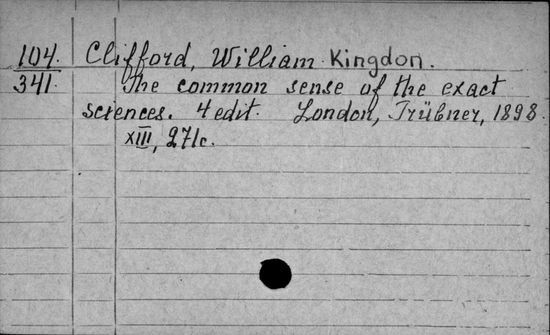 104. Clifford, William Kingdon.
341. The common sense of the exact
sciences. 4 edit. London, Trübner, 1898.
XIII, 271c.